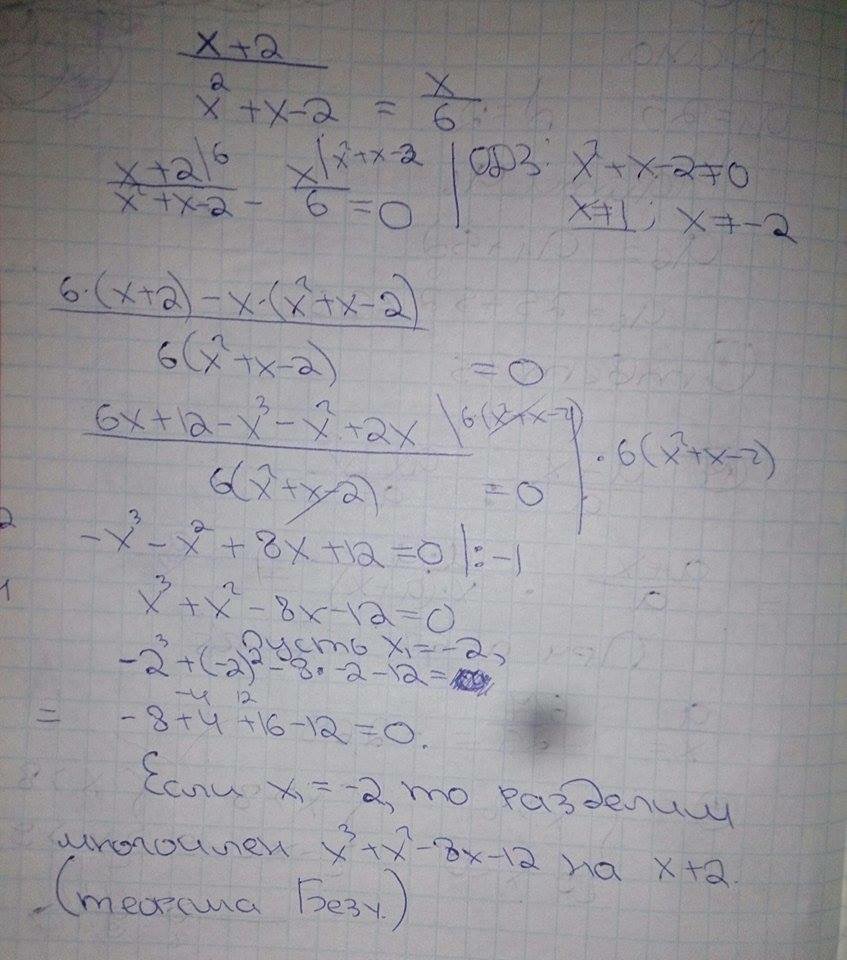 x+2
x²+x-2 = x/6
x+2|6 / x²+x-2 - x|x²+x-2 / 6 = 0 | ОДЗ: x²+x-2≠0
x≠1; x≠-2
6·(x+2)-x·(x²+x-2)
6(x²+x-2) = 0
6x+12-x³-x²+2x \6·(x²+x-2)
6(x²+x-2) = 0 | ·6(x²+x-2)
-x³-x²+8x+12=0 |:-1
x³+x²-8x-12=0
Пусть x₁=-2,
-2³+(-2)²-8·-2-12=
-4 12
= -8+4+16-12=0.
Если x₁=-2, то разделим
многочлен x³+x²-8x-12 на x+2.
(теорема Безу.)